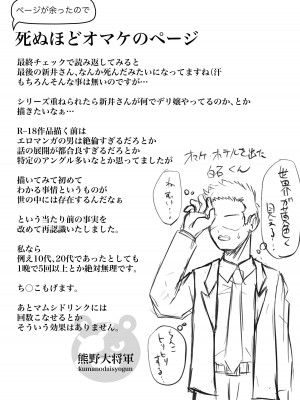 ページが余ったので
死ぬほどオマケのページ
最終チェックで読み返してみると
最後の新井さん、なんか死んだみたいになってますね(汗
もちろんそんな事は無いのですが…
シリーズ重ねられたら新井さんが何でデリ嬢やってるのか、とか
描きたいなぁ…
R-18作品描く前は
エロマンガの男は絶倫すぎるだろとか
話の展開が都合良すぎるだろとか
特定のアングル多いなとか思ってましたが
描いてみて初めて
わかる事情というものが
世の中には存在するんだなぁ
という当たり前の事実を
改めて再認識いたしました。
私なら
例え10代、20代であったとしても
1晩で5回以上とか絶対無理です。
ち○こもげます。
あとマムシドリンクには
回数こなせるとか
そういう効果はありません。
熊野大将軍
kumanodaisyogun
オマケ ホテルを出た
白石くん
世界が黄色く
見える…
ねむ…
ちんこ
ヒリヒリ
する…